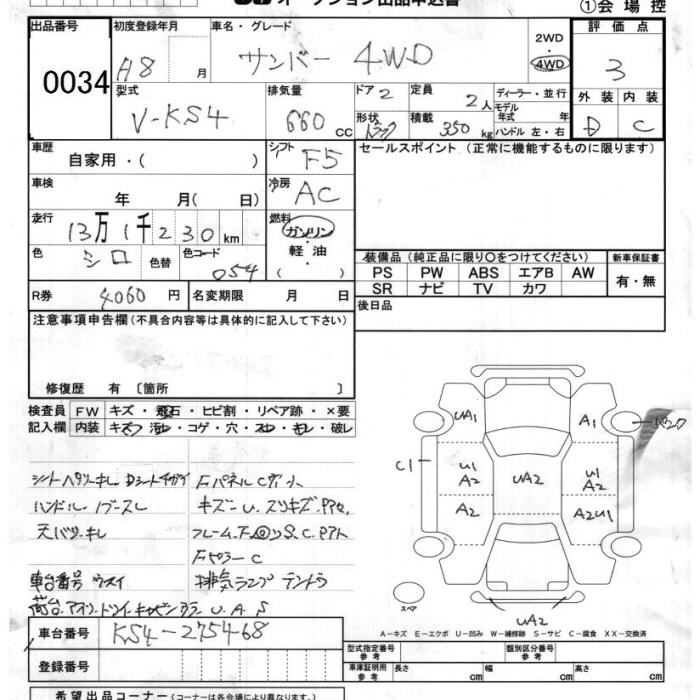 オークション出品申込書
①会場控
出品番号 0034
初度登録年月 H8 月
車名・グレード サンバー 4WD
2WD
4WD
評価点 3
外装 内装
D C
型式 V-KS4
排気量 660 CC
ドア 2
定員 2人
形状 トラック
積載 350 kg
ディーラー・並行
モデル年式 年
ハンドル 左・右
車歴 自家用・( )
シフト F5
セールスポイント (正常に機能するものに限ります)
車検 年 月( 日)
冷房 AC
走行 13万1千230km
燃料 ガソリン・軽油 ( )
色 シロ 色替
色コード 054
装備品 (純正品に限り〇をつけてください)
新車保証書
PS PW ABS エアB AW
SR ナビ TV カワ
有・無
R券 4060 円
名変期限 月 日
後日品
注意事項申告欄(不具合内容等は具体的に記入して下さい)
修復歴 有 〔箇所 〕
検査員記入欄
FW キズ・飛石・ヒビ割・リペア跡・×要
内装 キズ・汚レ・コゲ・穴・スレ・キレ・破レ
ハンドル
車台番号 ウスイ
排気ランプ テントウ
UA1
A1
C1
U1
A2
UA2
U1
A2
A2
A2U1
UA2
スペア
A-キズ E-エクボ U-凹み W-補修跡 S-サビ C-腐食 XX-交換済
車台番号 KS4-275468
登録番号
型式指定番号 参考
類別区分番号 参考
車庫証明用 参考
長さ cm 幅 cm 高さ cm
希望出品コーナー(コーナーは各会場により異なります。)